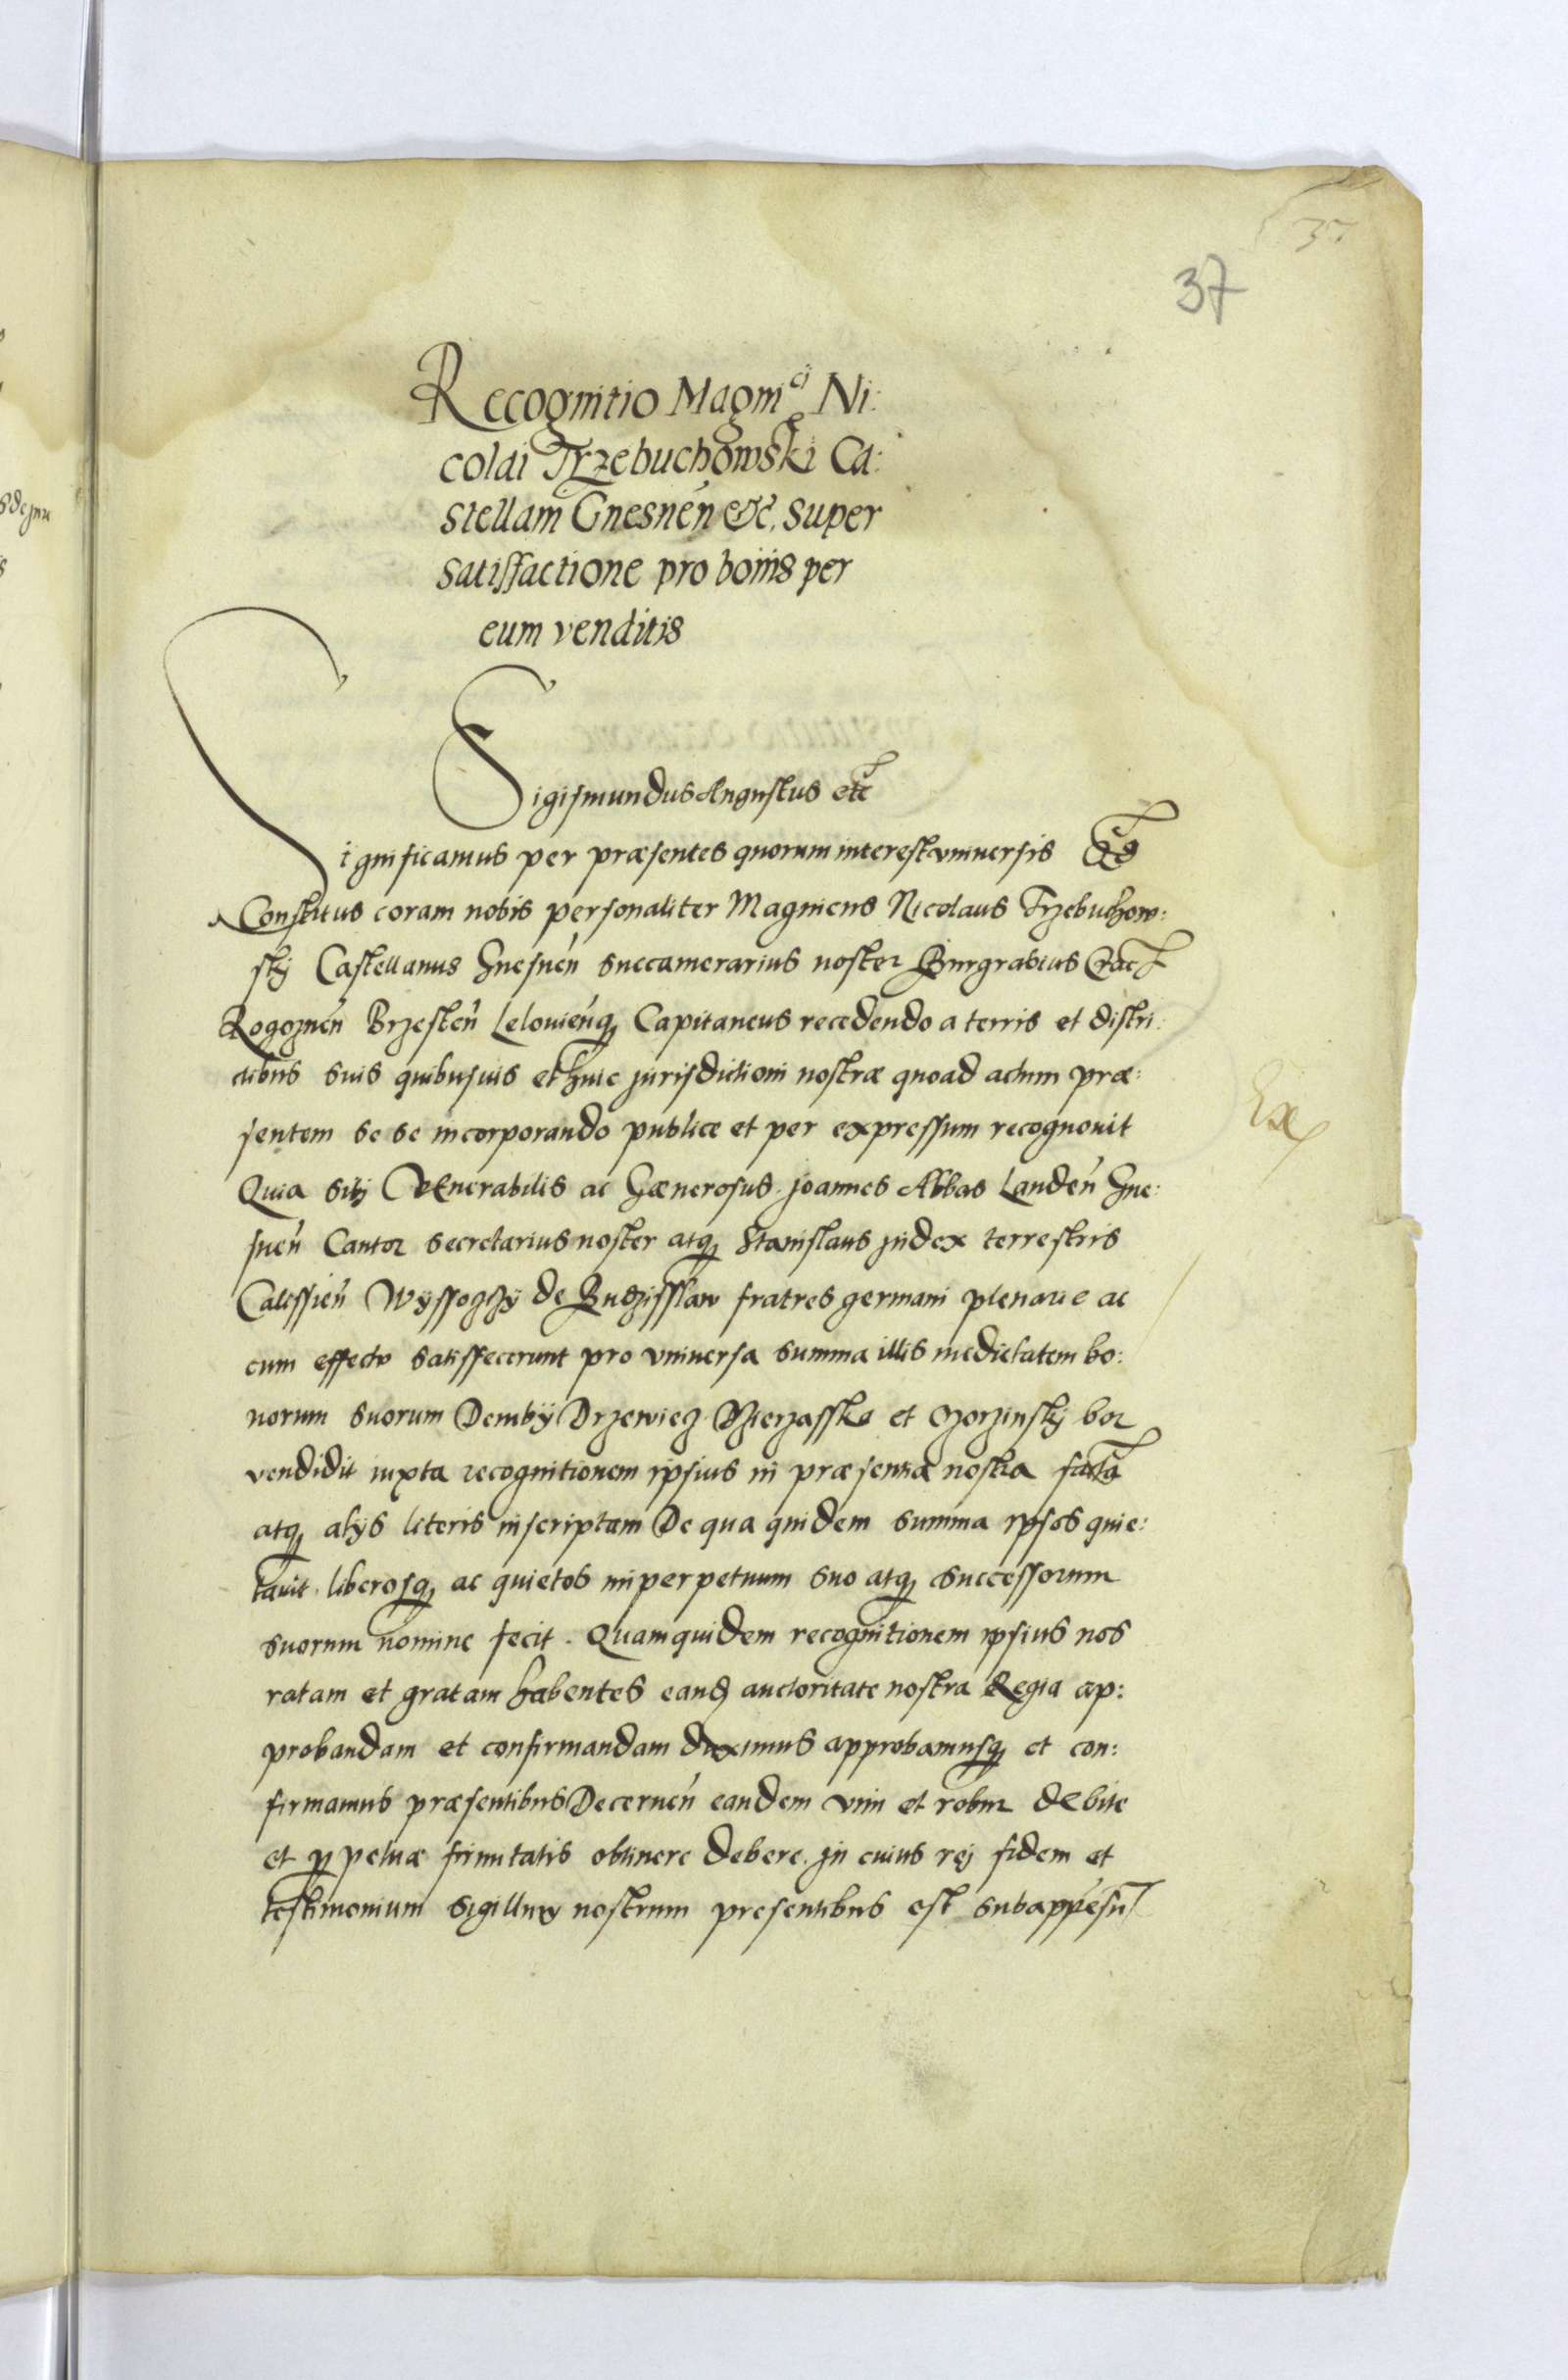 37
Recognitio Magnici Ni:
colai Trzebuchowski Ca:
stellani Gnesnen etc. super
satisfactione pro bonis per
eum venditis
Sigismundus Augustus etc
Significamus per præsentes quorum interest vniuersis
Constitus coram nobis personaliter Magnicus Nicolaus Trzebuchow:
skj Castellanus Gnesnen succamerarius noster Burgrabius Crac
Rogoznen Brzesten Lelouienq Capitaneus recedendo a terris et distri:
ctibus suis quibusuis et huic jurisdictioni nostræ quoad actum præ:
sentem se se incorporando publice et per expressum recognouit
Quia sibj Venerabilis ac Gænerosus joannes Abbas Landen Gne:
snen Cantor secretarius noster atq Stanislaus judex terrestris
Calissien Wyssozky de Budzisslaw fratres germani plenarie ac
cum effectv satisfecerunt pro vniuersa summa illis medietatem bo:
norum suorum Demby Drzewiecz et
vendidit iuxta recognitionem ipsius in præsentia nostra facta
atq alijs literis inscriptam De qua quidem summa ipsos quie:
tauit liberosq ac quietos inperpetuum suo atq successorum
suorum nomine fecit. Quamquidem recognitionem ipsius nos
ratam et gratam habentes eand auctoritate nostra Regia ap:
probandam et confirmandam duximus approbamusq et con:
firmamus præsentibus Decernen eandem vim et robur debite
et p petuæ firmitatis obtinere debere. jn cuius rej fidem et
testimonium sigillum nostrum presentibus est subappensu